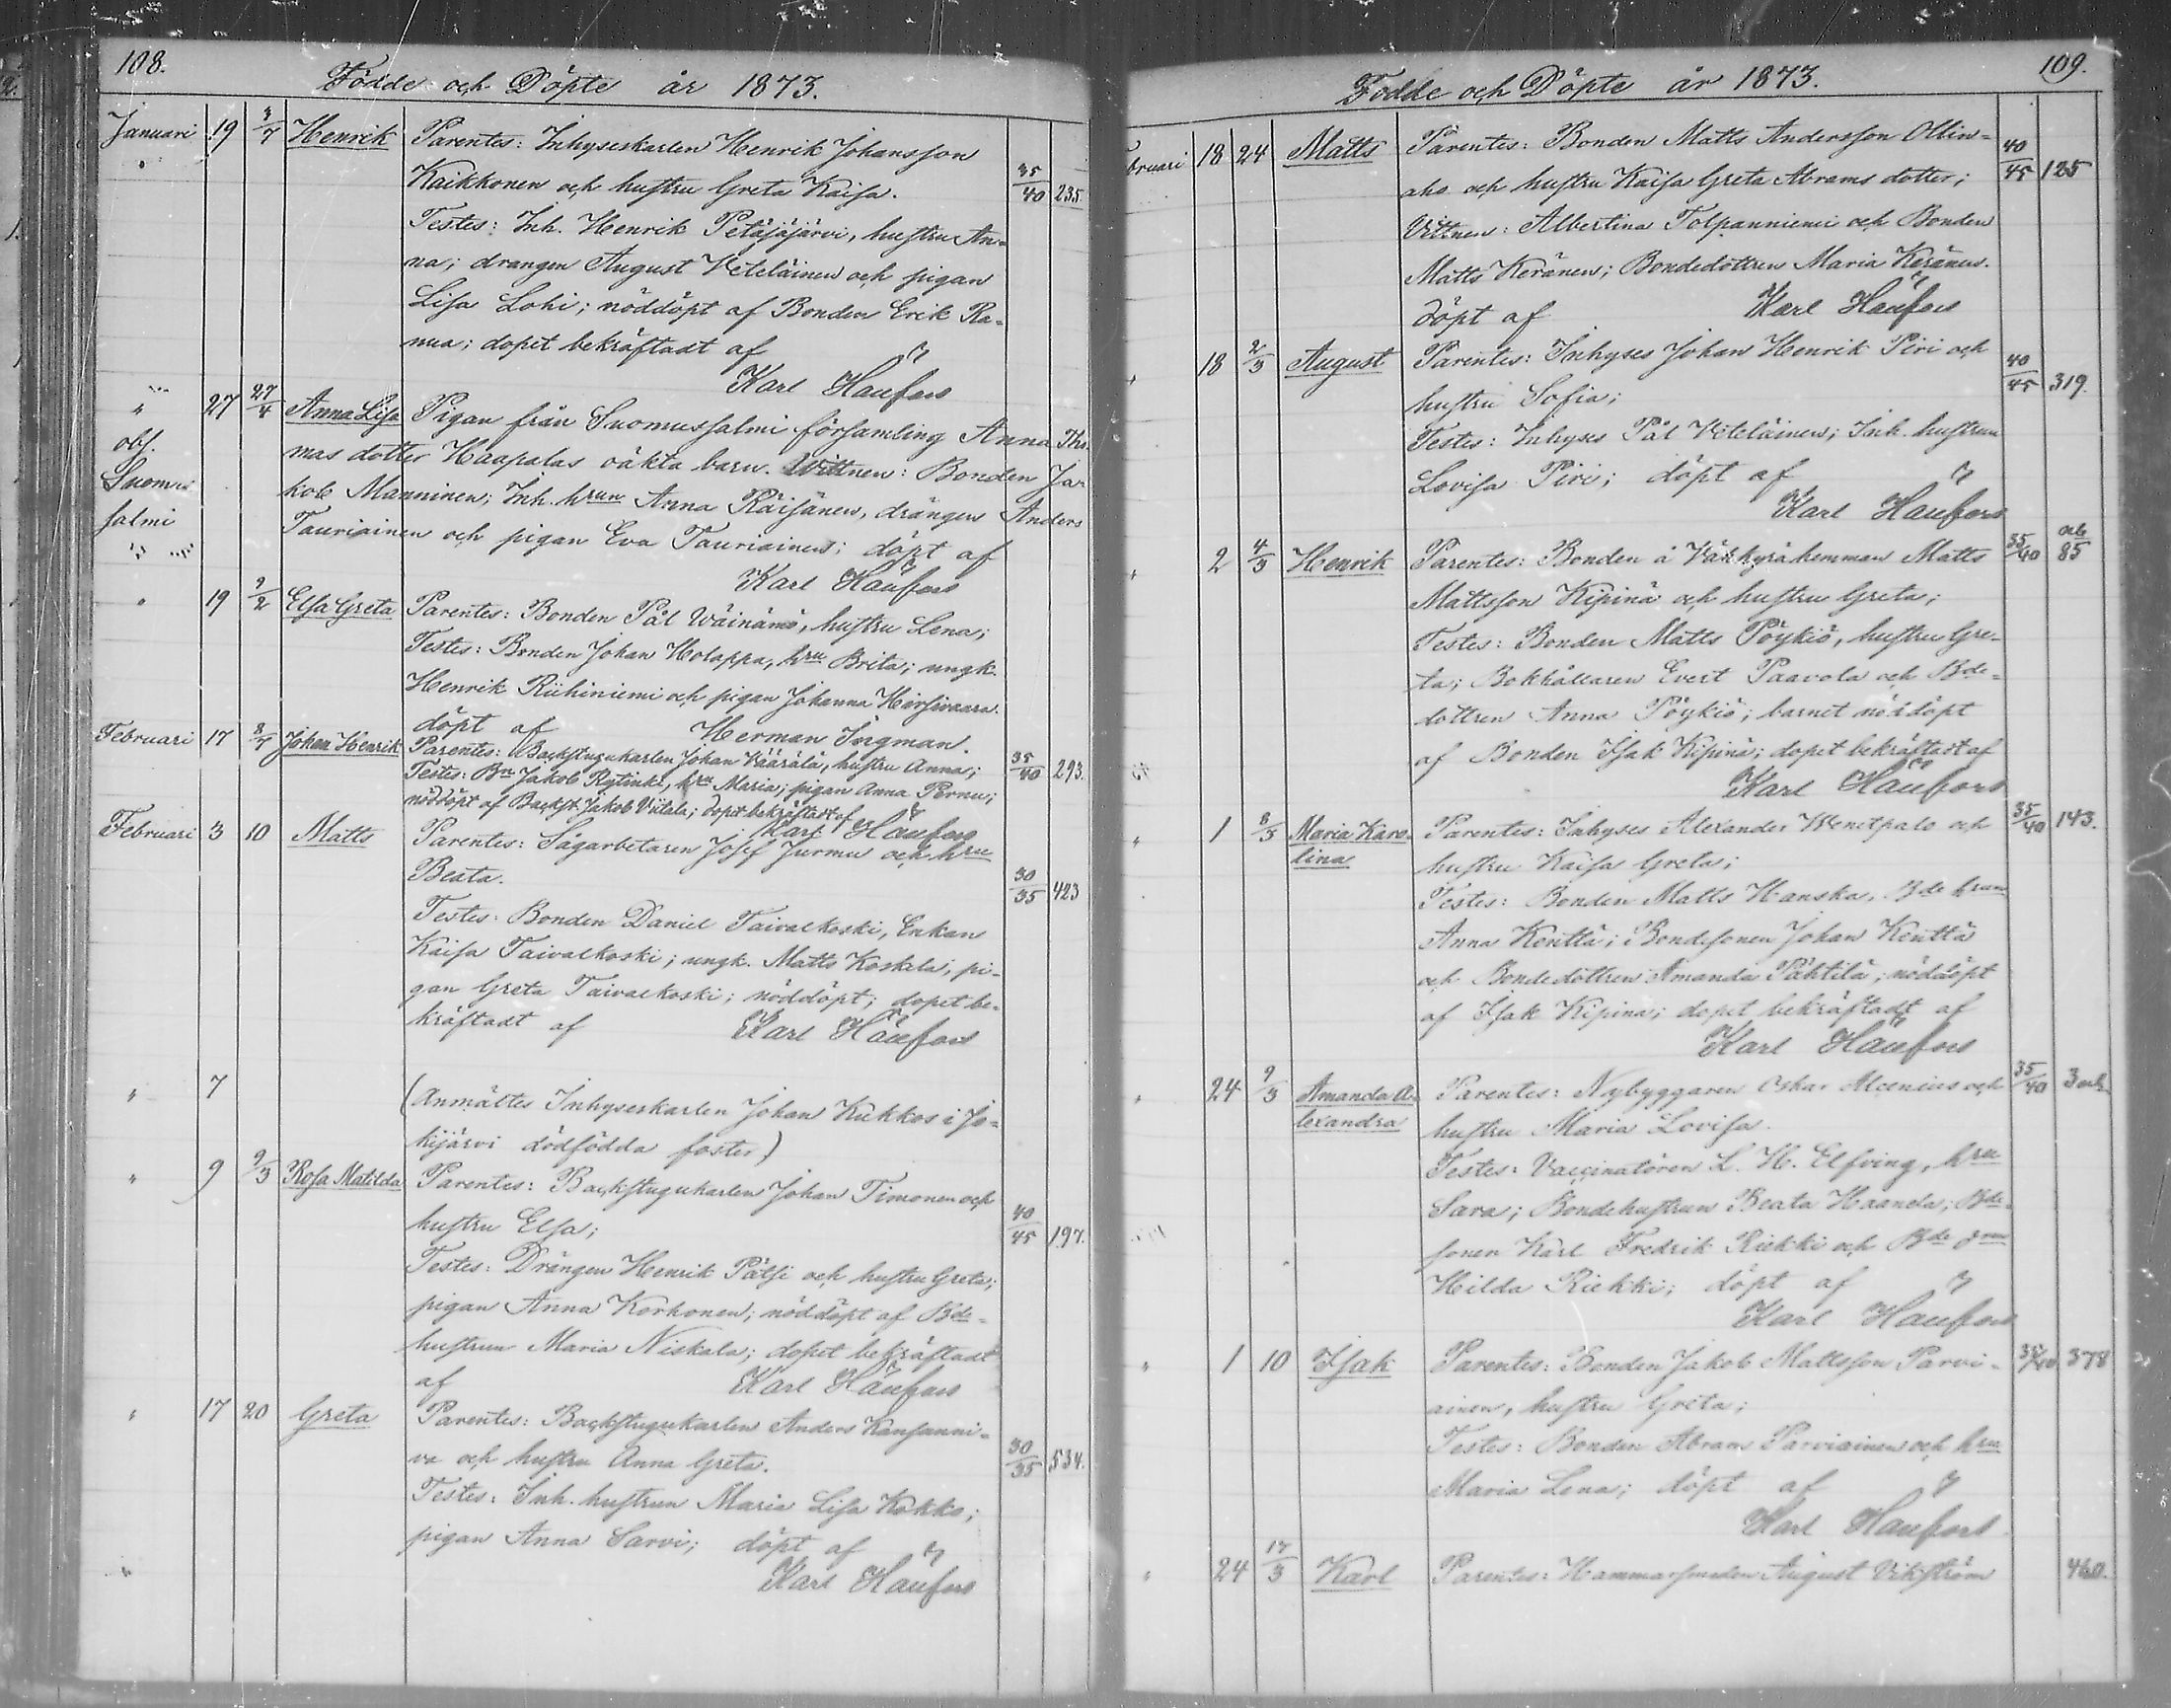 108.
Födde och Döpte år 1873.
Januari 19 3/7 Henrik Parentes: Inhyseskarlen Henrik Johansson
Kaikkonen och hustru Greta Kaisa. 35/40 235.
Testes: Inh. Henrik Petäjäjärvi, hustru An-
na; drangen August Veteläinen och pigan
Lisa Lohi; nöddöpt af Bonden Erik Ra-
nua; dopet bekräftadt af
Karl Haufors
" 27 27/4 Anna Lisa Pigan från Suomussalmi församling Anna Tho-
obs. mas dotter Haapalas oäkta barn. Wittnen: Bonden Ja-
Suomus kob Manninen; Inh. hrun Anna Räisänen, drängen Anders
salmi Tauriainen och pigan Eva Tauriainen; döpt af
Karl Haufors
" 19 9/2 Elsa Greta Parentes: Bonden Pål Wäinämö, hustru Lena;
Testes: Bonden Johan Holappa, hru Brita; ungk.
Henrik Riihiniemi och pigan Johanna Hirsivaara.
döpt af Herman Ingman.
Februari 17 8/7 Johan Henrik Parentes: Backstugukarlen Johan Väärälä, hustru Anna; 35/40 293.
Testes: Bn Jakob Rytinki, hru Maria; pigan Anna Pernu;
nöddöpt af Backst. Jakob Viitala; dopet bekräftadt af
Karl Haufors
Februari 3 10 Matts Parentes: Sågarbetaren Josef Jurmu och hru
Beata. 30/35 423
Testes: Bonden Daniel Taivalkoski, Enkan
Kaisa Taivalkoski; ungk. Matts Koskela; pi-
gan Greta Taivalkoski; nöddöpt; dopet be-
kräftadt af Karl Haufors
" 7 (Anmältes Inhyseskarlen Johan Kukkos i Jo-
kijärvi dödfödda foster)
" 9 9/3 Rosa Matilda Parentes: Backstugukarlen Johan Timonen och
hustru Elsa; 40/45 197.
Testes: Drängen Henrik Pätsi och hustru Greta;
pigan Anna Korhonen; nöddöpt af Bde-
hustrun Maria Niskala; dopet bekräftadt
af Karl Haufors
" 17 20 Greta Parentes: Backstugukarlen Anders Kansanni-
va och hustru Anna Greta. 30/35 534.
Testes: Inh. hustrun Maria Lisa Kokko;
pigan Anna Sarvi; döpt af
Karl Haufors
109.
Födde och Döpte år 1873.
bruari 18 24 Matts Parentes: Bonden Matts Andersson Ollin-
aho och hustru Kaisa Greta Abrams dotter; 40/45 125
Vittnen: Albertina Tolpanniemi och Bonden
Matts Keränen; Bondedottren Maria Keränen.
döpt af Karl Haufors
" 18 2/3 August Parentes: Inhyses Johan Henrik Piri och
hustru Sofia; 40/45 319.
Testes: Inhyses Pål Veteläinen; Inh. hustrun
Lovisa Piri; döpt af
Karl Haufors
" 2 4/3 Henrik Parentes: Bonden å Väkkyrähemman Matts 35/40 ab/85
Mattsson Kipinä och hustru Greta;
Testes: Bonden Matts Pöykiö, hustru Gre-
ta; Bokhållaren Evert Paavola och Bde-
dottren Anna Pöykiö; barnet nöddöpt
af Bonden Isak Kipinä; dopet bekräftadt af
Karl Haufors
" 1 8/3 Maria Karo- Parentes: Inhyses Alexander Wenetpalo och 35/40 143.
lina hustru Kaisa Greta;
Testes: Bonden Matts Hanska, Bde hrun
Anna Kenttä; Bondesonen Johan Kenttä
och Bondedottren Amanda Pähtilä; nöddöpt
af Isak Kipinä; dopet bekräftadt af
Karl Haufors
" 24 9/3 Amanda A- Parentes: Nybyggaren Oskar Alcenius och 35/40
lexandra hustru Maria Lovisa.
Testes: Vaccinatören L. H. Elfving, hru
Sara; Bondehustrun Beata Haanela; Bde-
sonen Karl Fredrik Riekki och Bde
Hilda Riekki; döpt af
Karl Haufors
" 1 10 Isak Parentes: Bonden Jakob Mattsson Parvi- 35/40 378
ainen, hustru Greta;
Testes: Bonden Abram Parviainen och hru
Maria Lena; döpt af
Karl Haufors
" 24 17/3 Karl Parentes: Hammarsmeden August Vikström 460.